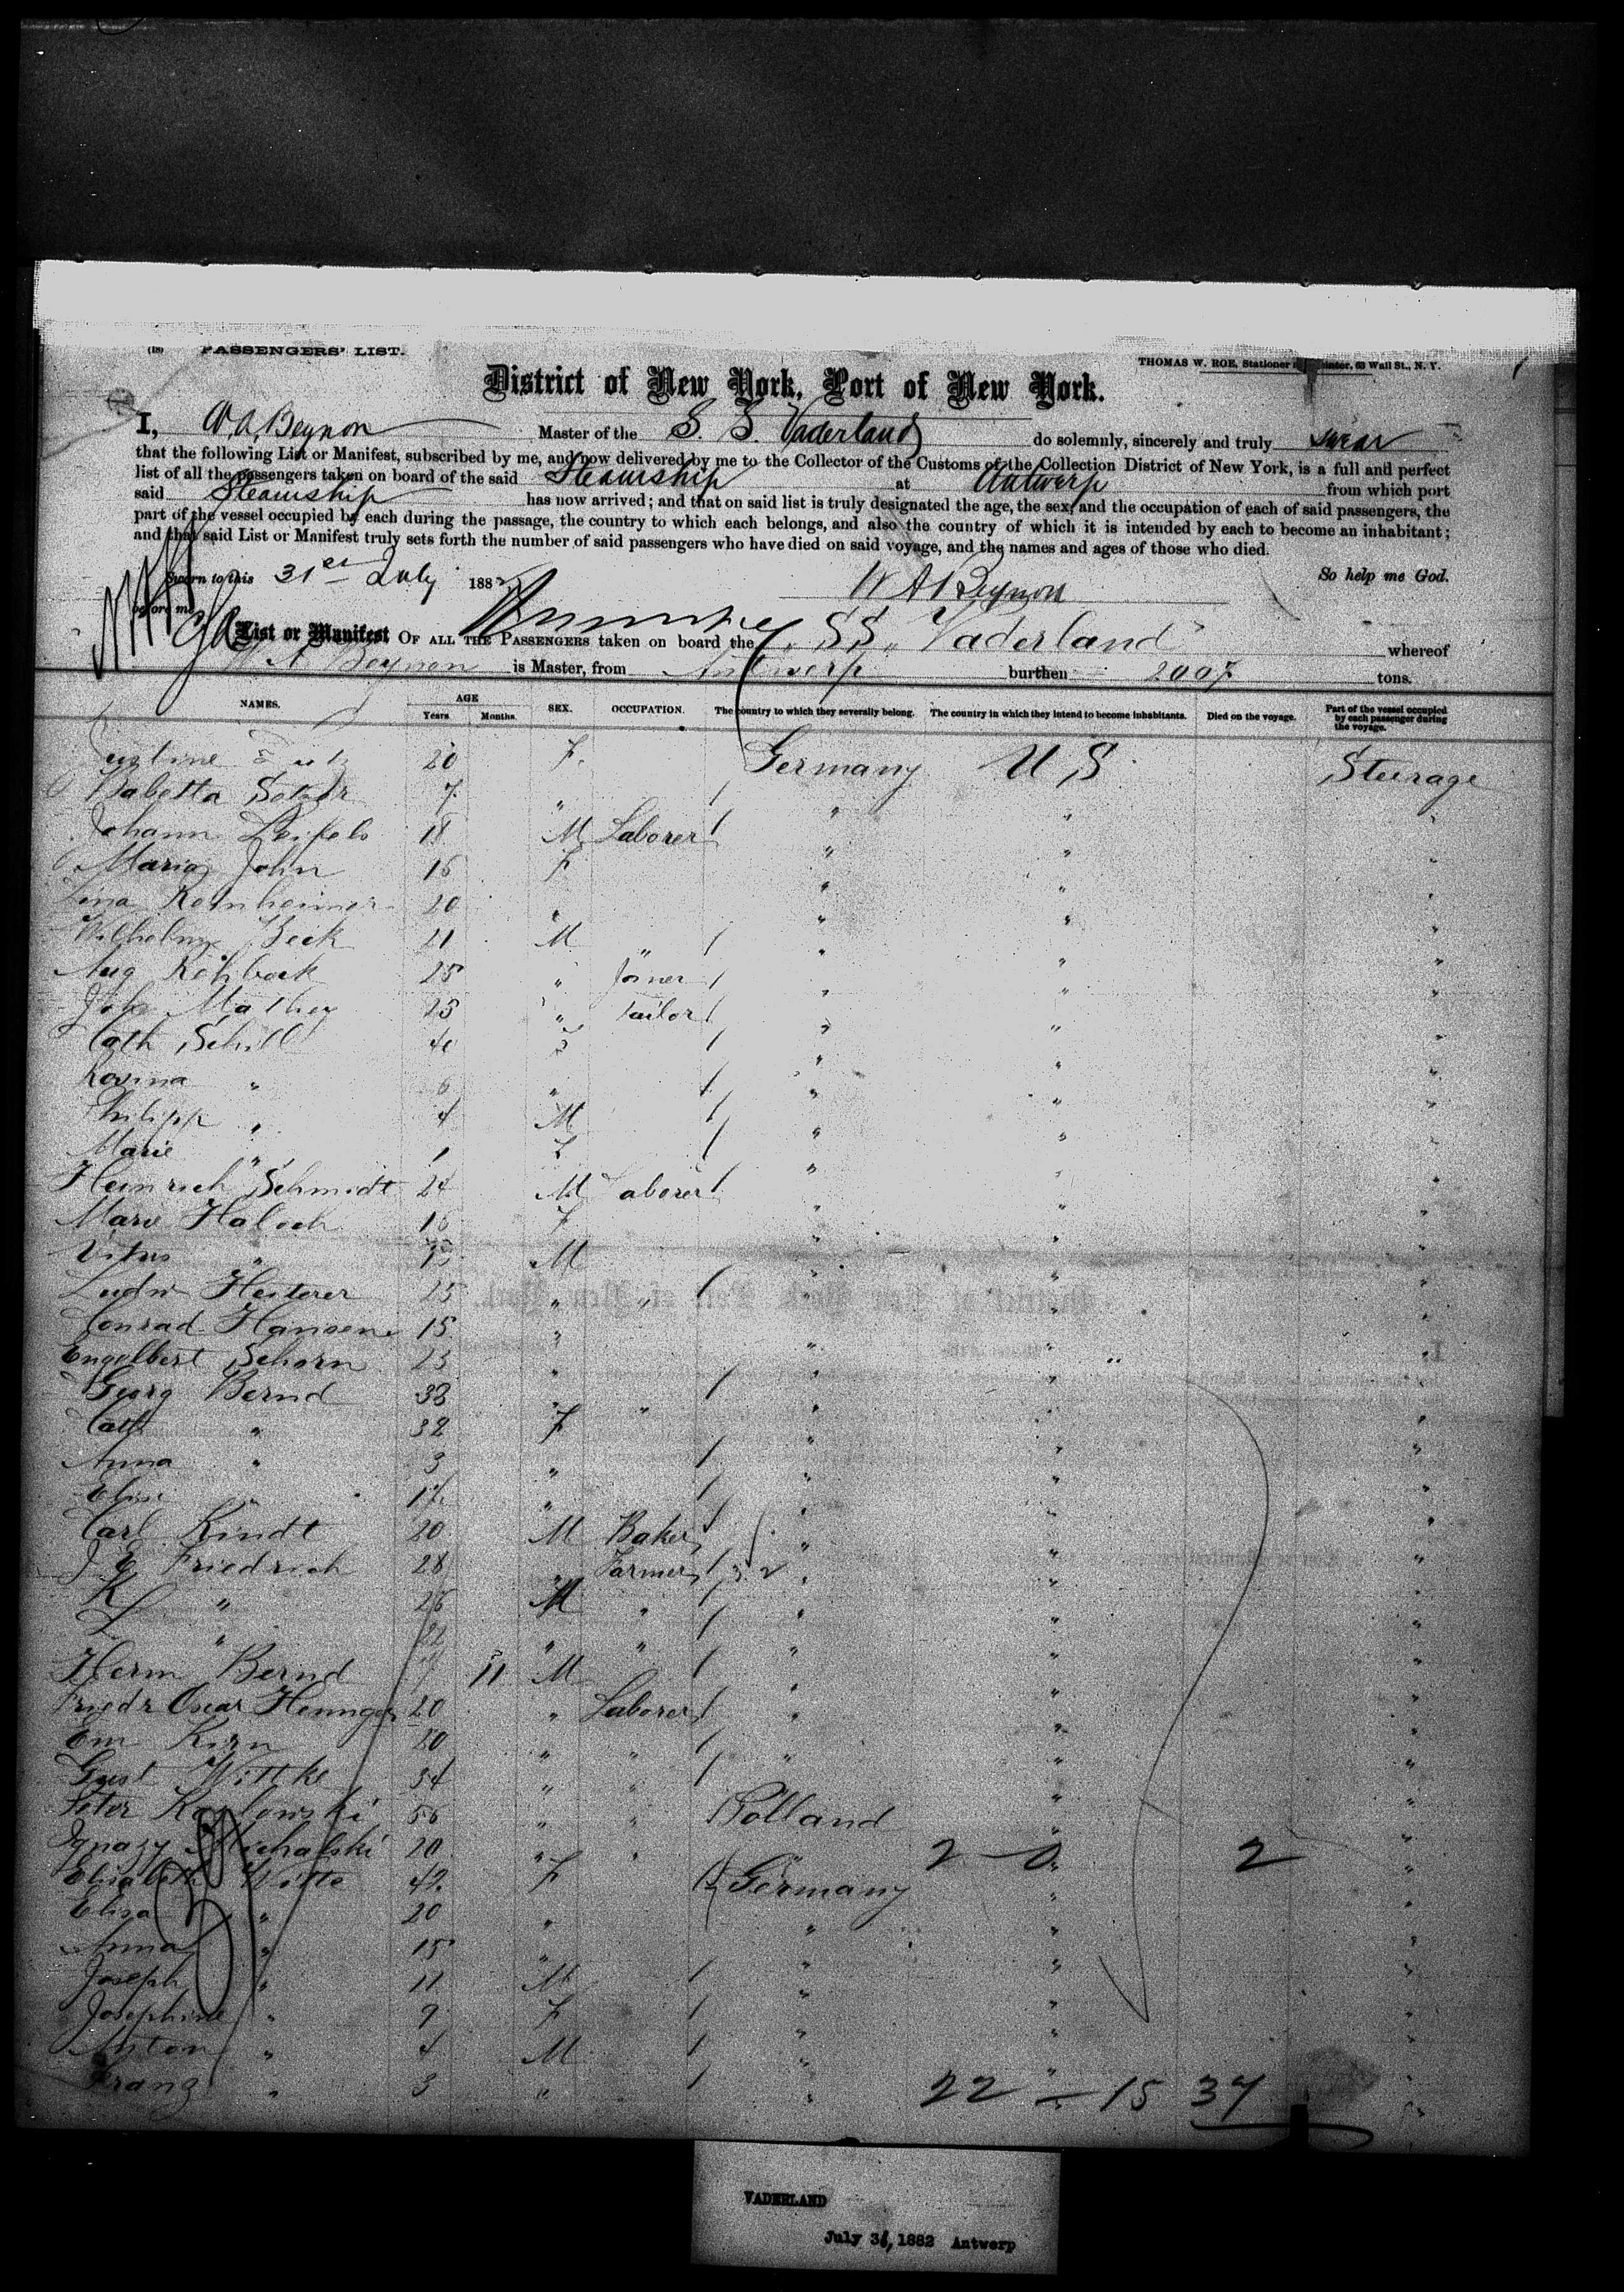 (18) PASSENGERS' LIST.
THOMAS W. ROE, Stationer Printer, 63 Wall St., N. Y.
District of New York, Port of New York.
I, W. A. Beynon Master of the S. S. Vaderland do solemnly, sincerely and truly swear
that the following List or Manifest, subscribed by me, and now delivered by me to the Collector of the Customs of the Collection District of New York, is a full and perfect
list of all the passengers taken on board of the said Steamship at Antwerp from which port
said Steamship has now arrived; and that on said list is truly designated the age, the sex, and the occupation of each of said passengers, the
part of the vessel occupied by each during the passage, the country to which each belongs, and also the country of which it is intended by each to become an inhabitant;
and that said List or Manifest truly sets forth the number of said passengers who have died on said voyage, and the names and ages of those who died.
Sworn to this 31st July 1882 So help me God.
W A Beynon
before me
List or Manifest OF ALL THE PASSENGERS taken on board the SS. Vaderland whereof
W. A. Beynon is Master, from Antwerp burthen 2007 tons.
NAMES. AGE Years. Months. SEX. OCCUPATION. The country to which they severally belong. The country in which they intend to become inhabitants. Died on the voyage. Part of the vessel occupied by each passenger during the voyage.
20 F. Germany U S Steerage
Babetta 7 " " " "
Johann 18 M Laborer " " "
Maria John 16 F " " "
Lina 20 " " " "
Wilhelm Beck 21 M " " " "
Aug Rohback 25 " Joiner " " "
Joh Mathey 25 " Tailor " " "
Cath Schill 40 F " " "
Rosina " 6 " " " "
Philipp " 4 M " " "
Marie " 1 F " " "
Heinrich Schmidt 24 M Laborer " " "
Marv Haloch 16 F " " "
Vitus " M " " "
Ludw Hesterer 25 " " " " "
Conrad Hansen 15 " " " "
Engelbert Schorn 23 " " " "
Georg Bernd 33 " " " " "
Cath " 32 F " " "
Anna " 3 " " " "
Elise " " " " "
Carl Kindt 20 M Baker " " "
J E Friedrich 28 " Farmer " " "
K " 26 M " " " "
L " 22 " " " " "
Herm Bernd 11 M " " "
Friedr Oscar Henniger 20 " Laborer " " "
Em Kirn 20 " " " " "
Gust Wittke 34 " " " " "
Peter Kozlowski 56 " " Polland " "
Ignazy Michalski 20 " " " 2 0 " 2 "
Elisabeth Witte 42 F Germany " "
Elisa " 20 " " " "
Anna " 15 " " " "
Joseph " 11 M " " "
Josephine " 9 F " " "
Anton " 4 M " " "
Franz " 3 " " 22 - 15 37 "
VADERLAND
July 31, 1882 Antwerp